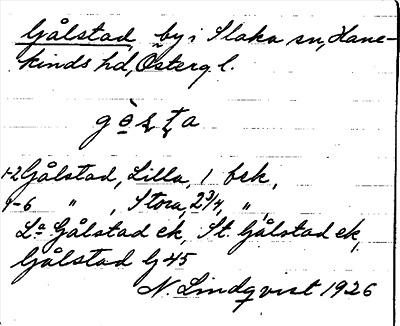 Gålstad, by i Slaka sn, Hane-
kinds hd, Östergl.
1-2 Gålstad, Lilla, 1 frk,
1-6 " , Stora, 2 3/4, ",
La Gålstad ek, St. Gålstad ek,
Gålstad G 45
N. Lindqvist 1926